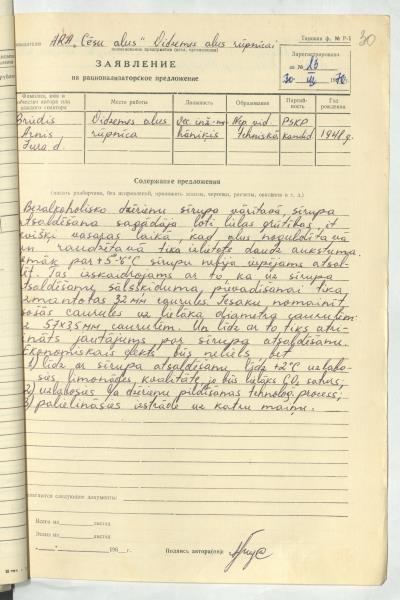 ARA „Cēsu alus” Vidzemes alus rūpnīcai
Типовая ф. № Р-1
30
наименование предприятия
Зарегистрировано
за № 13
30
ЗАЯВЛЕНИЕ
на рационализаторское предложение
Фамилия, имя и отчество автора или каждого соавтора
Место работы
Должность
Образование
Партий-
ность
Год
рождения
Brūdis Vidzemes alus vec. inž.-me- Nep. vid. PSKP
Arnis rūpnīca hāniķis Tehniskā kandid. 1948.g.
Jura d
Содержание предложения
(писать разборчиво, без исправлений, приложить эскизы, чертежи, расчеты, описания и т. д.)
Bezalkoholisko dzērienu sīrupa vārītavā, sīrupa
atsaldēšana sagādāja ļoti lielas grūtības, it
sevišķi vasaras laikā, kad alus nogulditavā
un raudzētavā tika izlietots daudz aukstuma.
zemāk par +5°-6°C sīrupu nebija iespējams atsal-
dēt. Tas izskaidrojams ar to, ka uz sīrupa
atsaldēšanu sālsšķiduma pievadīšanai tika
izmantotas 32 мм caurules. Iesaku nomainīt
šosās caurules uz lielāka diametra caurulēm
z 57x35 мм caurulēm. Un līdz ar to tiks atri-
sināts jautājums par sīrupa atsaldēšanu.
Ekonomiskais efekts būs neliels, bet
1) līdz ar sīrupa atsaldēšanu līdz +2°C uzlabo-
sies limonādes kvalitāte, jo būs lielāks CO₂ saturs,
2) uzlabosies b/a dzērienu pildīšanas tehnoloģ. process;
3) palielināsies izstrāde uz katru maiņu.
Прилагаются следующие документы:
Всего на листах
Эскиз на листах
„ ” 196 г.
Подпись автора(ов):